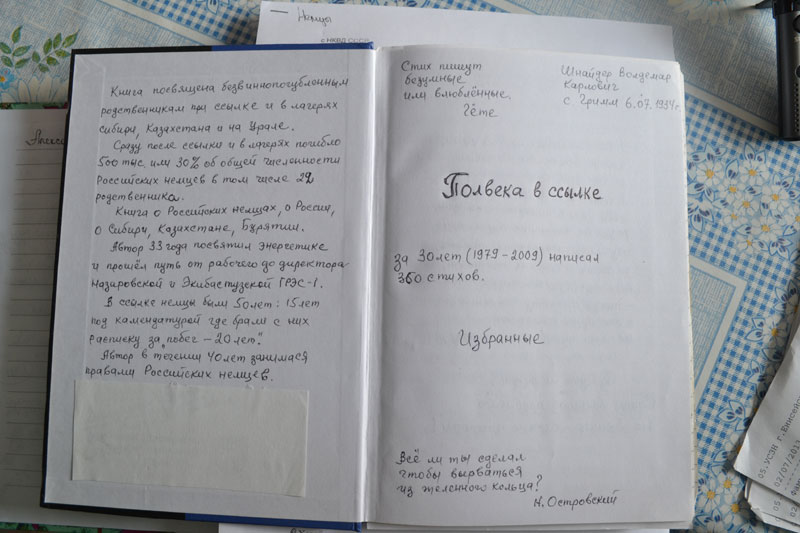 Немцы
с НКВД СССР
Книга посвящена безвиннопогубленным
родственникам при ссылке и в лагерях
Сибири, Казахстана и на Урале.
Сразу после ссылки и в лагерях погибло
500 тыс. или 30% об общей численности
Российских немцев в том числе 22
родственника.
Книга о Российских немцах, о России,
о Сибири, Казахстане, Бурятии.
Автор 33 года посвятил энергетике
и прошёл путь от рабочего до директора
Назаровской и Экибастузской ГРЭС-1.
В ссылке немцы были 50 лет: 15 лет
под камендатурой где брали с них
расписку за "побег – 20 лет".
Автор в течении 40 лет занимася
правами Российских немцев.
Стих пишут
безумные
или влюблённые.
Гёте
Шнайдер Волдемар
Карлович
с Гримм 6.07.1934 г.
Полвека в ссылке
за 30 лет (1979 – 2009) написал
360 стихов.
Избранные
Всё ли ты сделал
чтобы вырваться
из железного кольца?
Н. Островский
05.УСЗН г. Енисей
02/07/201